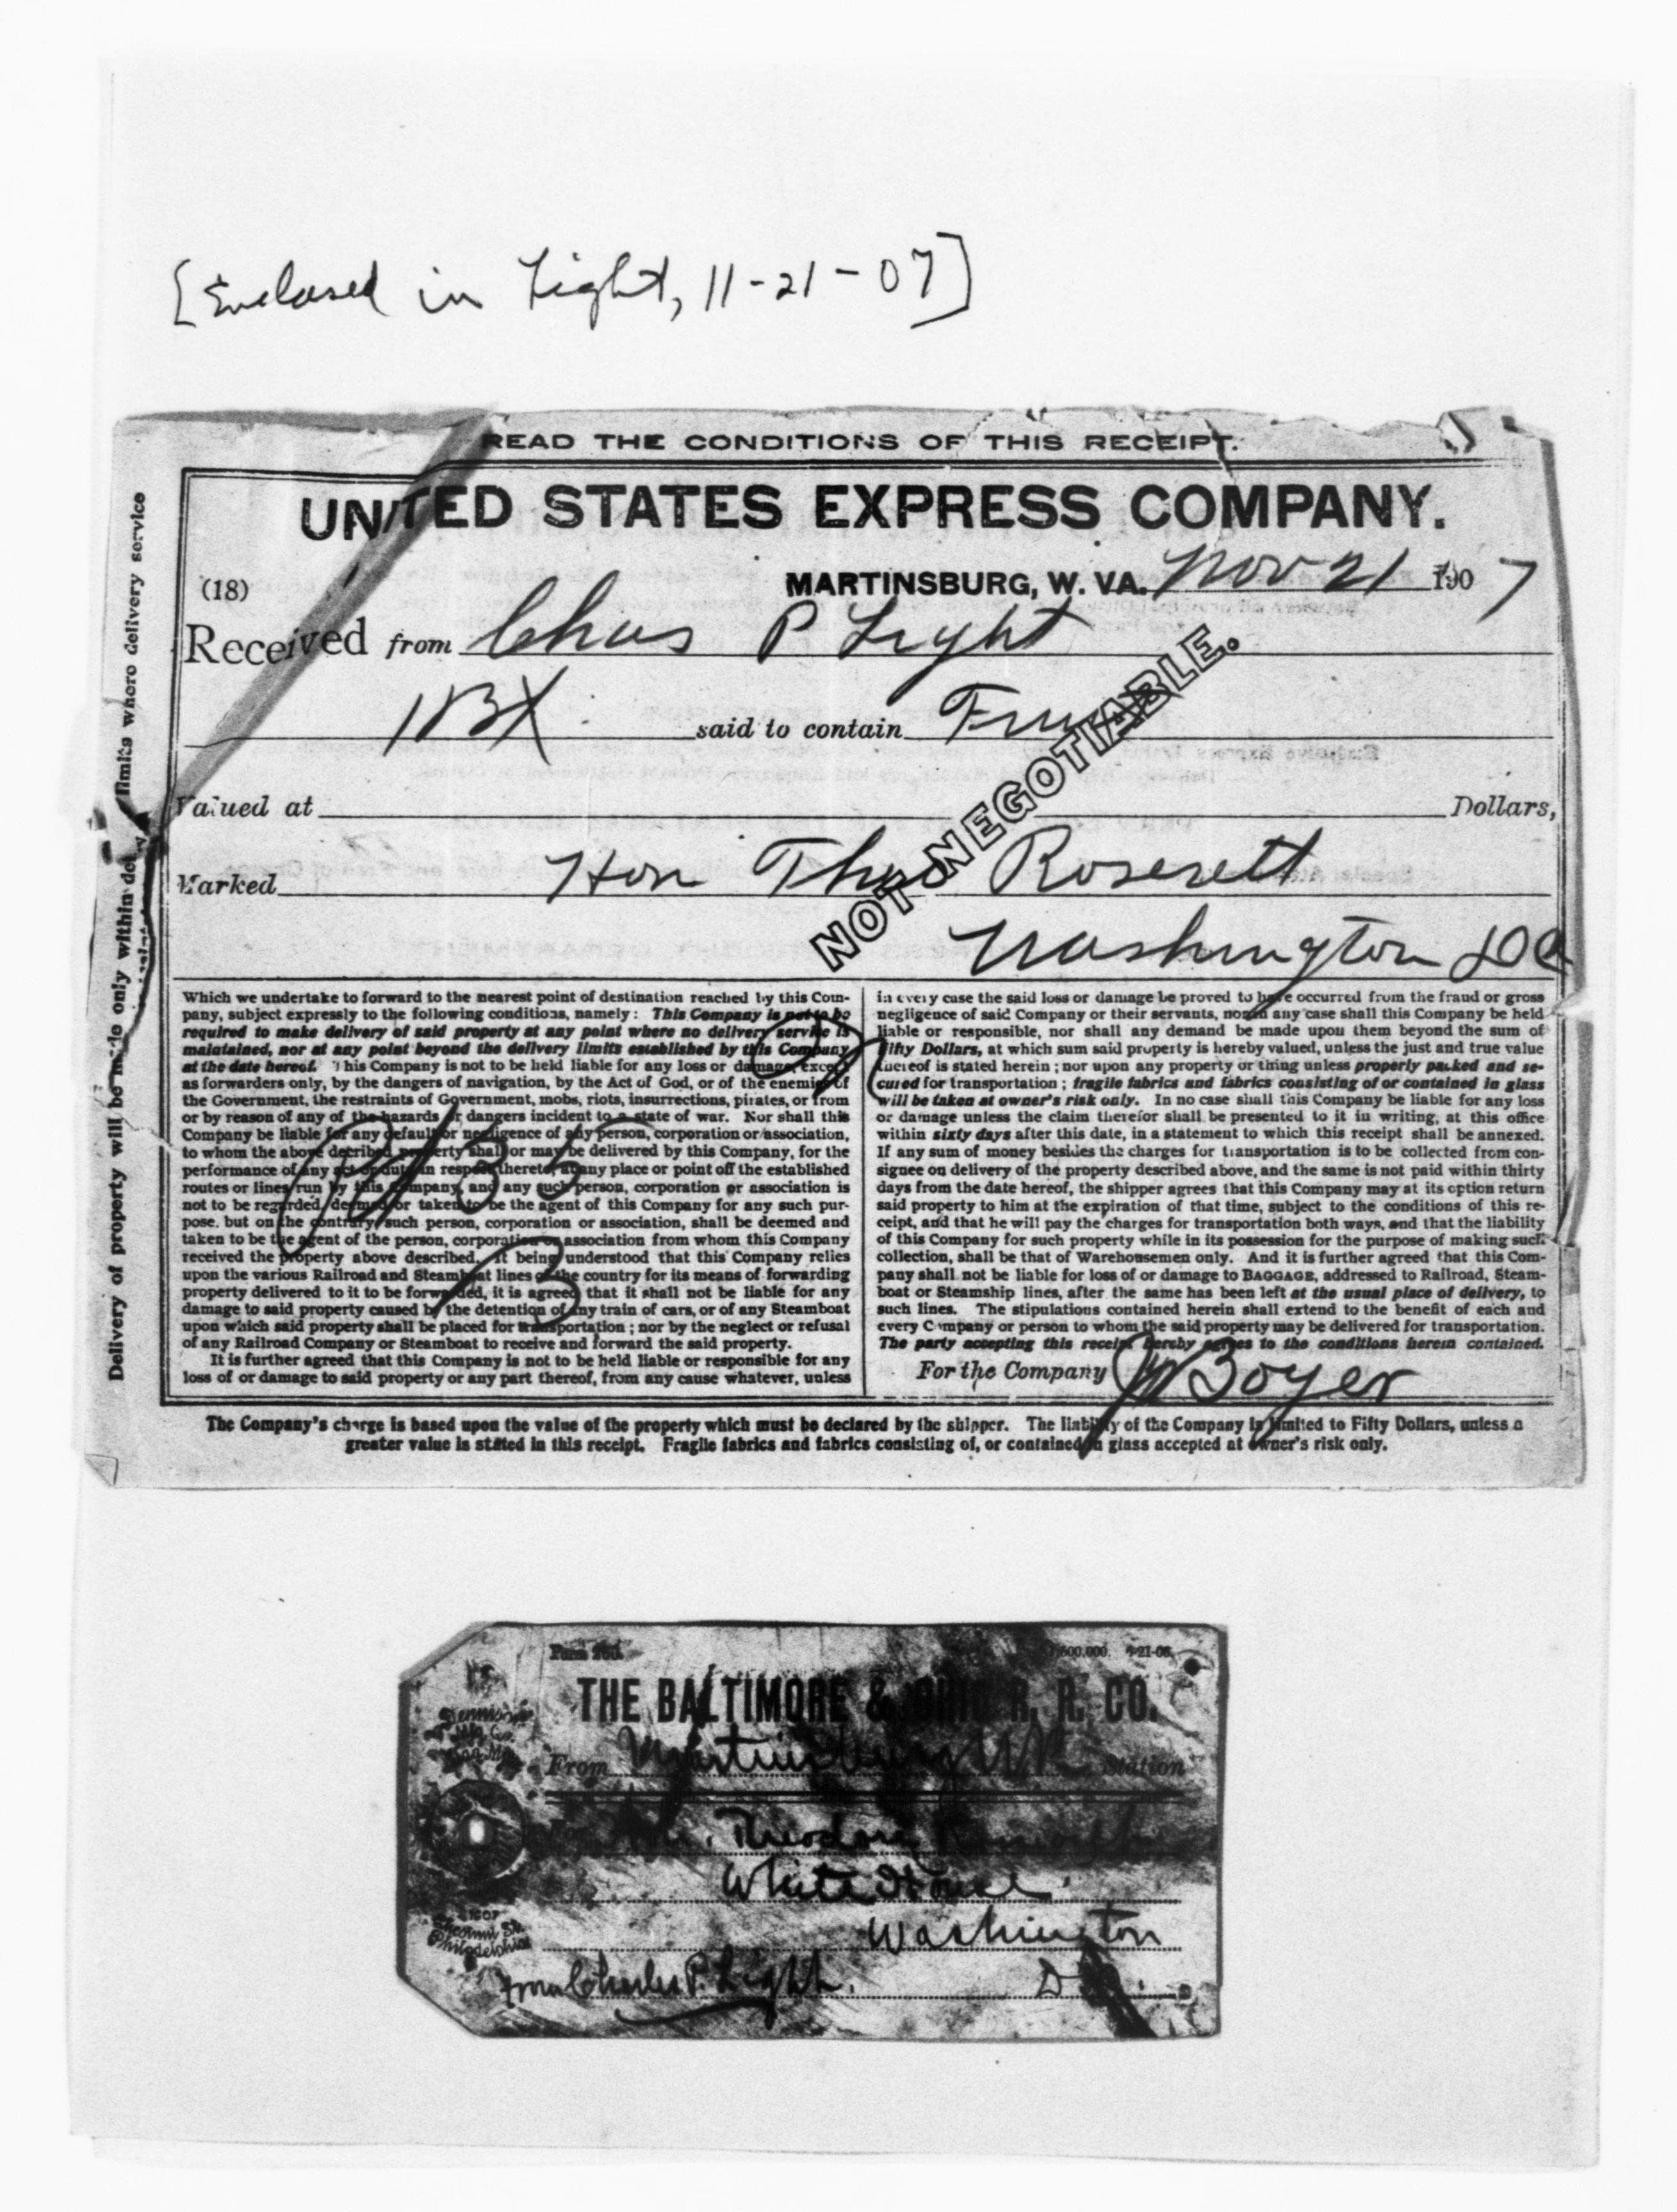 [Enclosed in Light, 11-21-07]
READ THE CONDITIONS OF THIS RECEIPT.
UNITED STATES EXPRESS COMPANY.
(18) MARTINSBURG, W. VA. Nov 21 1907
Received from Chas P Light
1 BX said to contain
Valued at Dollars,
Marked Hon Theo Roserelt
Washington DC
NOT NEGOTIABLE.
Which we undertake to forward to the nearest point of destination reached by this Com-
pany, subject expressly to the following conditions, namely: This Company is not to be
required to make delivery of said property at any point where no delivery service is
maintained, nor at any point beyond the delivery limits established by this Company
at the date hereof. This Company is not to be held liable for any loss or damage, except
as forwarders only, by the dangers of navigation, by the Act of God, or of the enemies of
the Government, the restraints of Government, mobs, riots, insurrections, pirates, or from
or by reason of any of the hazards or dangers incident to a state of war. Nor shall this
Company be liable for any default or negligence of any person, corporation or association,
to whom the above decribed property shall or may be delivered by this Company, for the
performance of any act or duty in respect thereto, at any place or point off the established
routes or lines run by this Company, and any such person, corporation or association is
not to be regarded, deemed or taken to be the agent of this Company for any such pur-
pose, but on the contrary, such person, corporation or association, shall be deemed and
taken to be the agent of the person, corporation or association from whom this Company
received the property above described. It being understood that this Company relies
upon the various Railroad and Steamboat lines of the country for its means of forwarding
property delivered to it to be forwarded, it is agreed that it shall not be liable for any
damage to said property caused by the detention of any train of cars, or of any Steamboat
upon which said property shall be placed for transportation; nor by the neglect or refusal
of any Railroad Company or Steamboat to receive and forward the said property.
It is further agreed that this Company is not to be held liable or responsible for any
loss of or damage to said property or any part thereof, from any cause whatever, unless
in every case the said loss or damage be proved to have occurred from the fraud or gross
negligence of said Company or their servants, nor in any case shall this Company be held
liable or responsible, nor shall any demand be made upon them beyond the sum of
Fifty Dollars, at which sum said property is hereby valued, unless the just and true value
thereof is stated herein; nor upon any property or thing unless properly packed and se-
cured for transportation; fragile fabrics and fabrics consisting of or contained in glass
will be taken at owner's risk only. In no case shall this Company be liable for any loss
or damage unless the claim therefor shall be presented to it in writing, at this office
within sixty days after this date, in a statement to which this receipt shall be annexed.
If any sum of money besides the charges for transportation is to be collected from con-
signee on delivery of the property described above, and the same is not paid within thirty
days from the date hereof, the shipper agrees that this Company may at its option return
said property to him at the expiration of that time, subject to the conditions of this re-
ceipt, and that he will pay the charges for transportation both ways, and that the liability
of this Company for such property while in its possession for the purpose of making such
collection, shall be that of Warehousemen only. And it is further agreed that this Com-
pany shall not be liable for loss of or damage to BAGGAGE, addressed to Railroad, Steam-
boat or Steamship lines, after the same has been left at the usual place of delivery, to
such lines. The stipulations contained herein shall extend to the benefit of each and
every Company or person to whom the said property may be delivered for transportation.
The party accepting this receipt hereby agrees to the conditions herein contained.
For the Company Boyer
The Company's charge is based upon the value of the property which must be declared by the shipper. The liability of the Company is limited to Fifty Dollars, unless a
greater value is stated in this receipt. Fragile fabrics and fabrics consisting of, or contained in glass accepted at owner's risk only.
Delivery of property will be made only within delivery limits where delivery service
THE BALTIMORE & OHIO R. R. CO.
From Martinsburg W Va Station
Theodore Roosevelt
White House
Washington
D.C.
from Charles P. Light.
Dennison
Mfg. Co.
Chestnut St.
Philadelphia